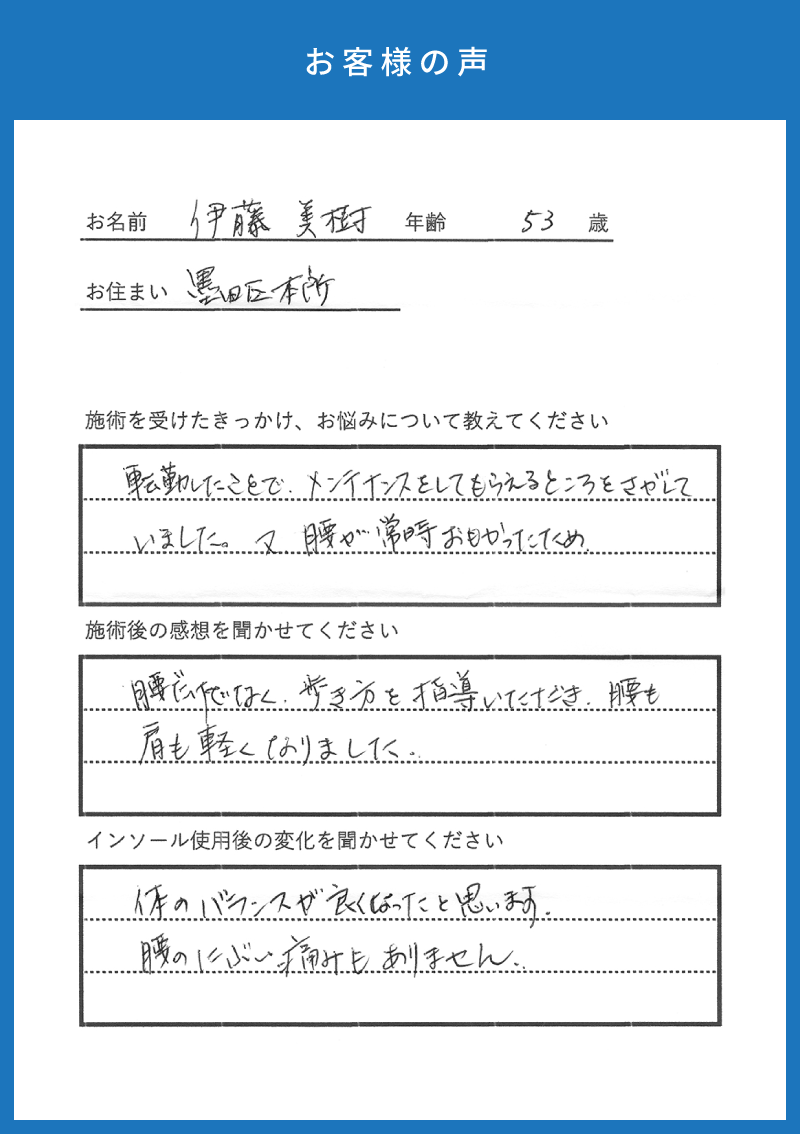 お客様の声
お名前 伊藤 美樹 年齢 53 歳
お住まい 墨田区本所
施術を受けたきっかけ、お悩みについて教えてください
転勤したことで、メンテナンスをしてもらえるところをさがして
いました。又 腰が常時おもかったため、
施術後の感想を聞かせてください
腰だけでなく、歩き方を指導いただき、腰も
肩も軽くなりました。
インソール使用後の変化を聞かせてください
体のバランスが良くなったと思います。
腰のにぶい痛みもありません。